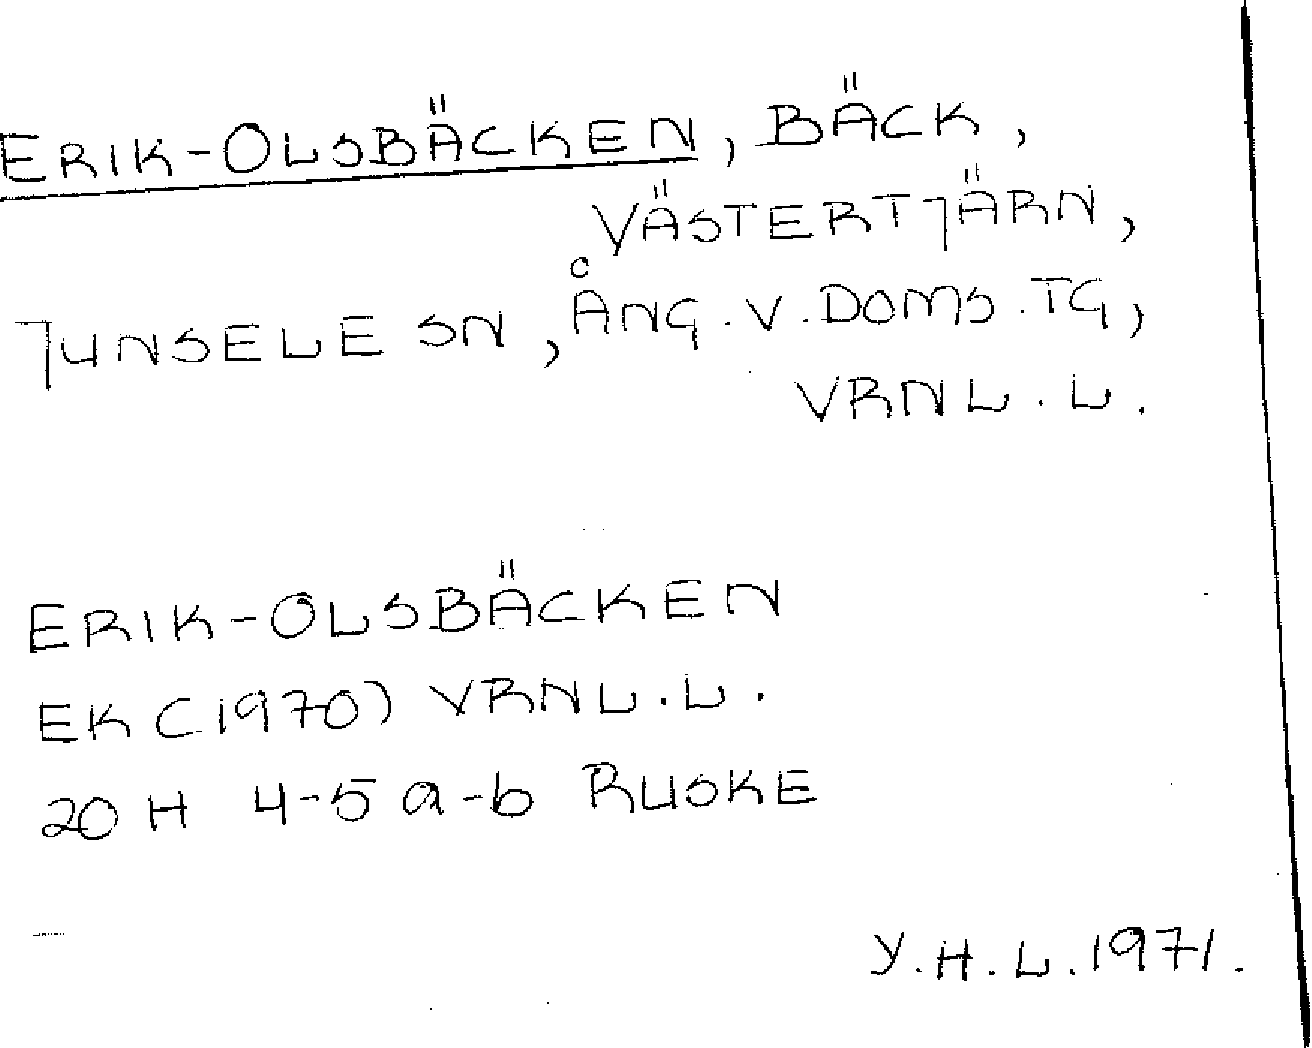 ERIK-OLSBÄCKEN, BÄCK,
VÄSTERTJÄRN,
JUNSELE SN, ÅNG. V. DOMS. TG,
VRNL. L.
ERIK-OLSBÄCKEN
EK (1970) VRNL. L.
20 H 4-5 a-b RUSKE
Y. H. L. 1971.